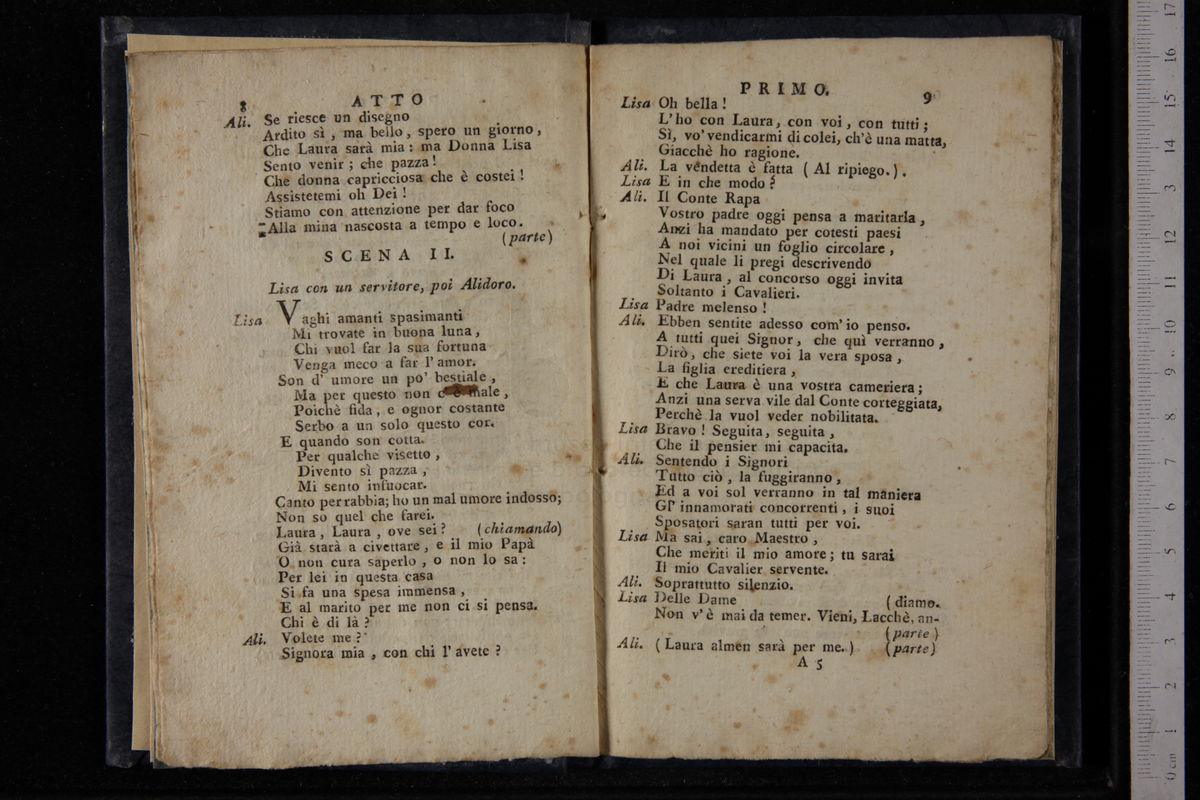 8 ATTO
Ali. Se riesce un disegno
Ardito sì, ma bello, spero un giorno,
Che Laura sarà mia: ma Donna Lisa
Sento venir; che pazza!
Che donna capricciosa che è costei!
Assistetemi oh Dei!
Stiamo con attenzione per dar foco
Alla mina nascosta a tempo e loco.
(parte)
SCENA II.
Lisa con un servitore, poi Alidoro.
Lisa Vaghi amanti spasimanti
Mi trovate in buona luna,
Chi vuol far la sua fortuna
Venga meco a far l'amor.
Son d'umore un po' bestiale,
Ma per questo non c'è male,
Poichè fida, e ognor costante
Serbo a un solo questo cor.
E quando son cotta.
Per qualche visetto,
Divento sì pazza,
Mi sento infuocar.
Canto per rabbia; ho un mal umore indosso;
Non so quel che farei.
Laura, Laura, ove sei? (chiamando)
Già starà a civettare, e il mio Papà
O non cura saperlo, o non lo sa:
Per lei in questa casa
Si fa una spesa immensa,
E al marito per me non ci si pensa.
Chi è di là?
Ali. Volete me?
Signora mia, con chi l'avete?
PRIMO. 9
Lisa Oh bella!
L'ho con Laura, con voi, con tutti;
Sì, vo' vendicarmi di colei, ch'è una matta,
Giacchè ho ragione.
Ali. La vendetta è fatta (Al ripiego.).
Lisa E in che modo?
Ali. Il Conte Rapa
Vostro padre oggi pensa a maritarla,
Anzi ha mandato per cotesti paesi
A noi vicini un foglio circolare,
Nel quale li pregi descrivendo
Di Laura, al concorso oggi invita
Soltanto i Cavalieri.
Lisa Padre melenso!
Ali. Ebben sentite adesso com'io penso.
A tutti quei Signor, che quì verranno,
Dirò, che siete voi la vera sposa,
La figlia ereditiera,
E che Laura è una vostra cameriera;
Anzi una serva vile dal Conte corteggiata,
Perchè la vuol veder nobilitata.
Lisa Bravo! Seguita, seguita,
Che il pensier mi capacita.
Ali. Sentendo i Signori
Tutto ciò, la fuggiranno,
Ed a voi sol verranno in tal maniera
Gl' innamorati concorrenti, i suoi
Sposatori saran tutti per voi.
Lisa Ma sai, caro Maestro,
Che meriti il mio amore; tu sarai
Il mio Cavalier servente.
Ali. Soprattutto silenzio.
Lisa Delle Dame (diamo.
Non v'è mai da temer. Vieni, Lacchè, an-
(parte)
Ali. (Laura almen sarà per me.) (parte)
A 5
0 cm 1 2 3 4 5 6 7 8 9 10 11 12 3 14 15 16 17